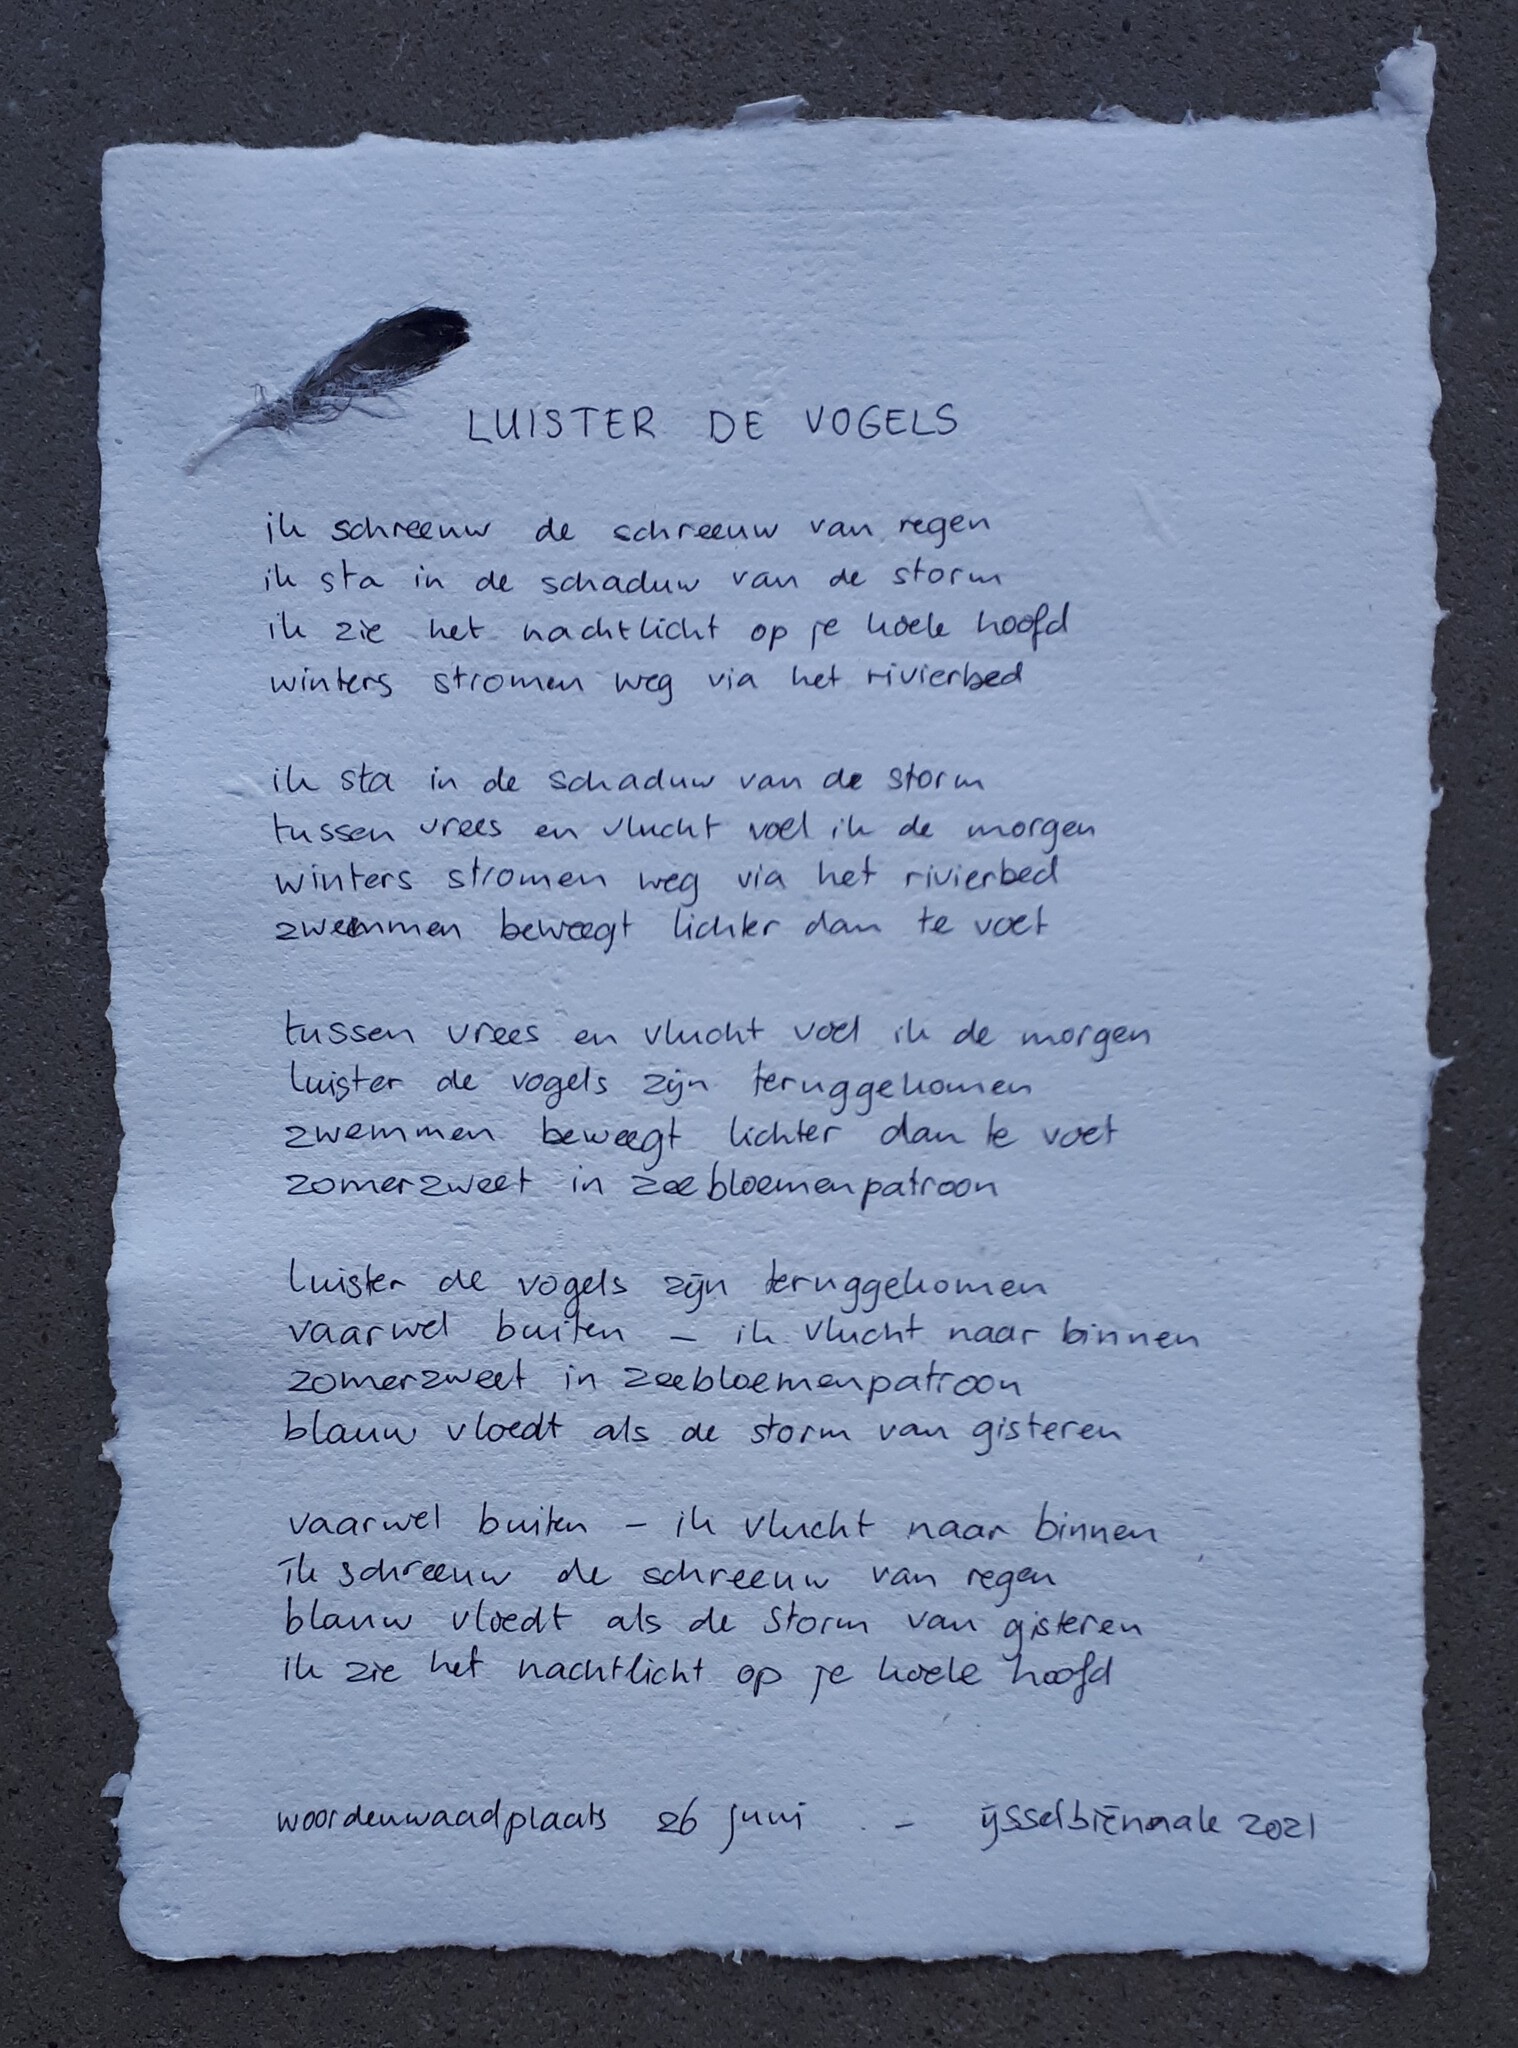 LUISTER DE VOGELS
ik schreeuw de schreeuw van regen
ik sta in de schaduw van de storm
ik zie het nachtlicht op je koele hoofd
winters stromen weg via het rivierbed
ik sta in de schaduw van de storm
tussen vrees en vlucht voel ik de morgen
winters stromen weg via het rivierbed
zwemmen beweegt lichter dan te voet
tussen vrees en vlucht voel ik de morgen
luister de vogels zijn teruggekomen
zwemmen beweegt lichter dan te voet
zomerzweet in zeebloemenpatroon
luister de vogels zijn teruggekomen
vaarwel buiten – ik vlucht naar binnen
zomerzweet in zeebloemenpatroon
blauw vloedt als de storm van gisteren
vaarwel buiten – ik vlucht naar binnen
ik schreeuw de schreeuw van regen
blauw vloedt als de storm van gisteren
ik zie het nachtlicht op je koele hoofd
woordenwaadplaats 26 juni – ijsselbiënnale 2021